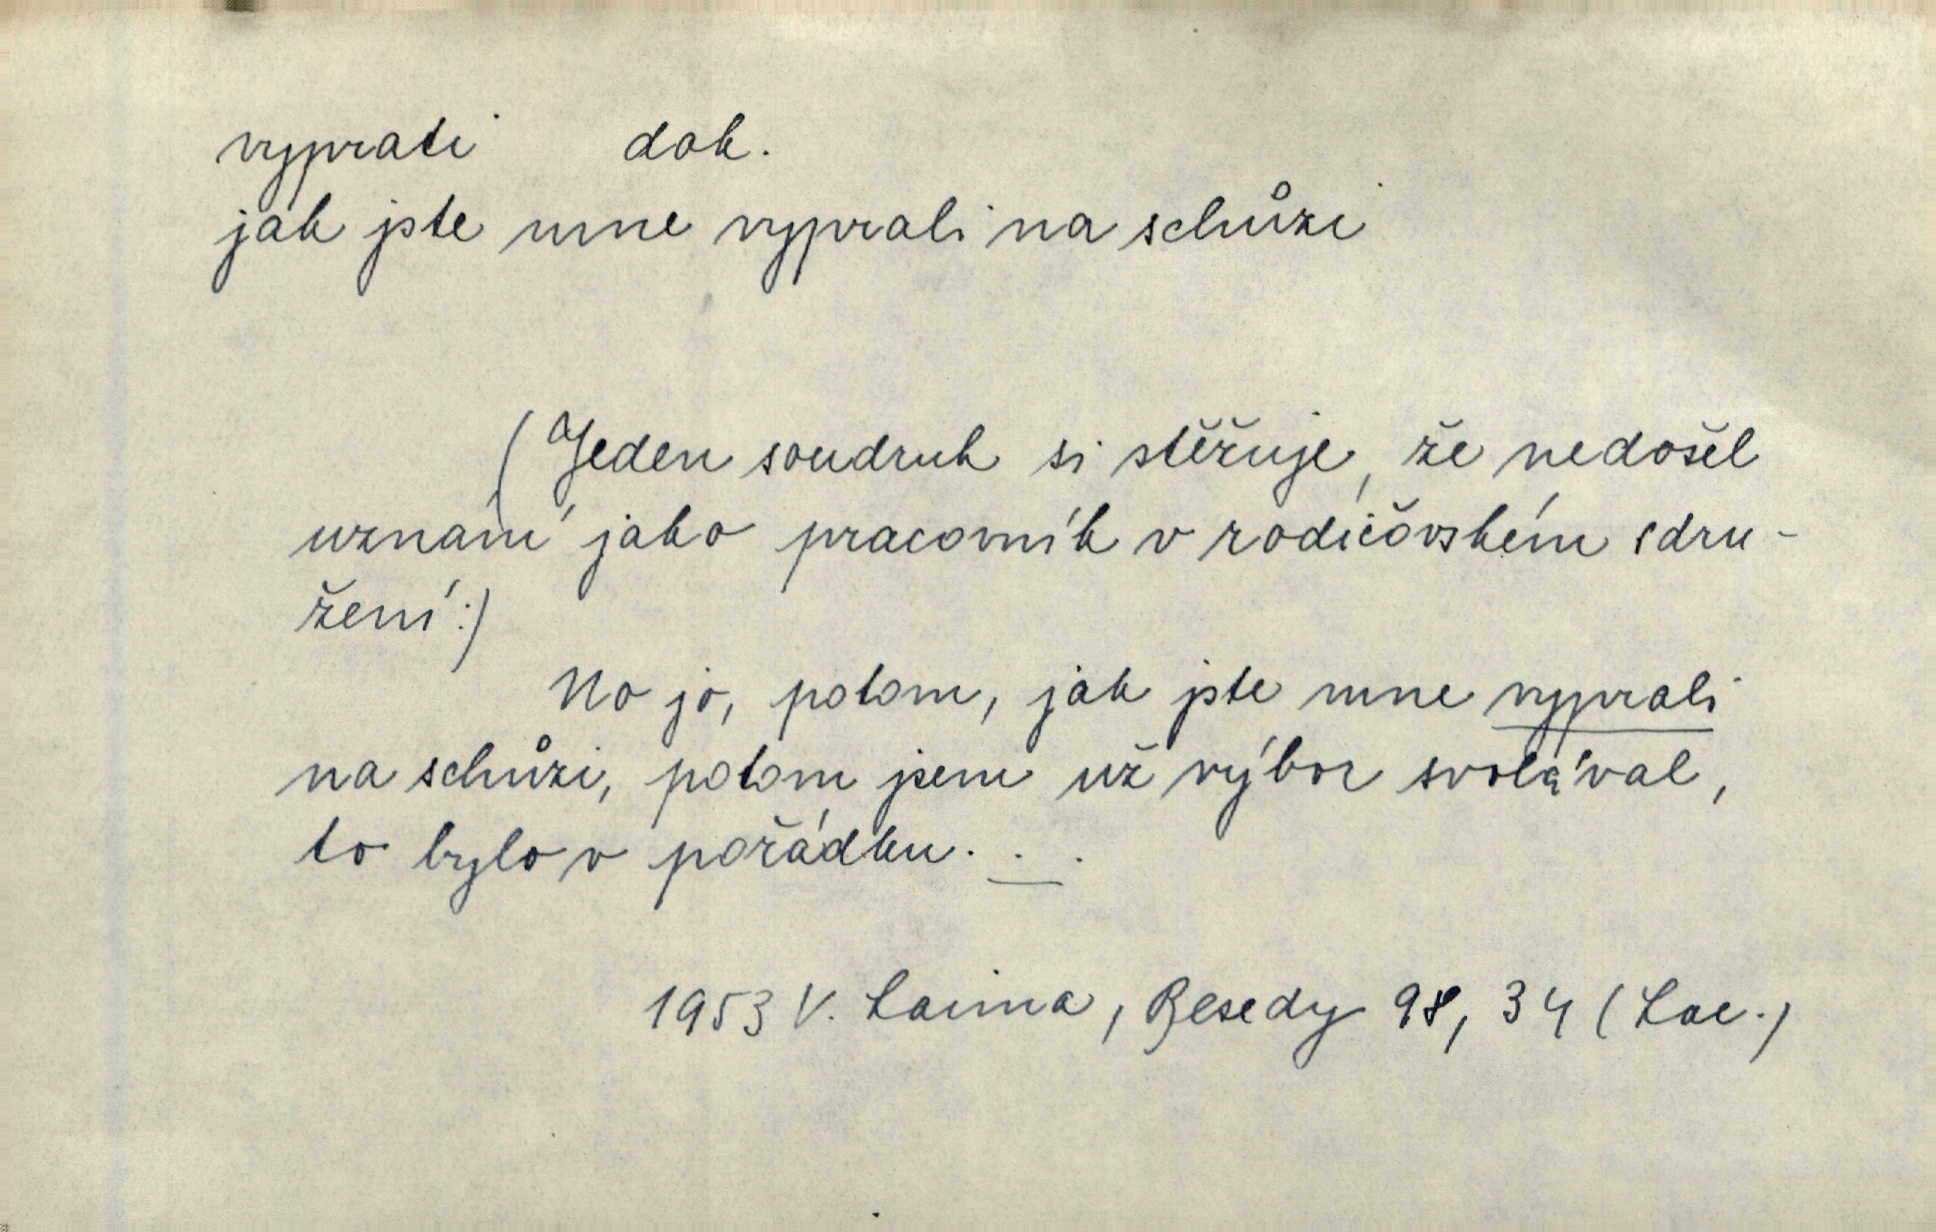 vyprati dok.
jak jste mne vyprali na schůzi
(Jeden soudruh si stěžuje, že nedošel
uznání jako pracovník v rodičovském sdru-
žení:)
No jo, potom, jak jste mne vyprali
na schůzi, potom jsem už výbor svolával,
to bylo v pořádku. . .
1953 V. Lacina, Besedy 98, 34 (Lac.)